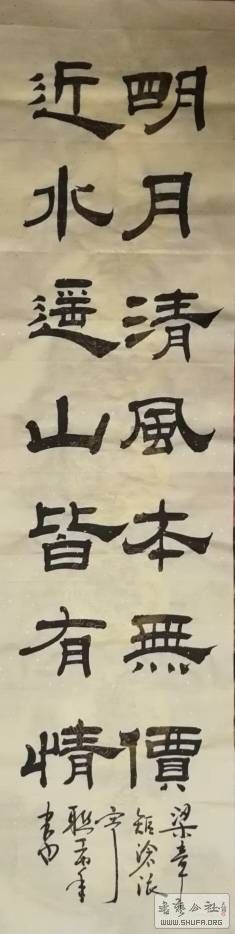 明月清風本無價
近水遠山皆有情
梁章
鉅滄浪
亭
書藝公社
WWW.SHUFA.ORG